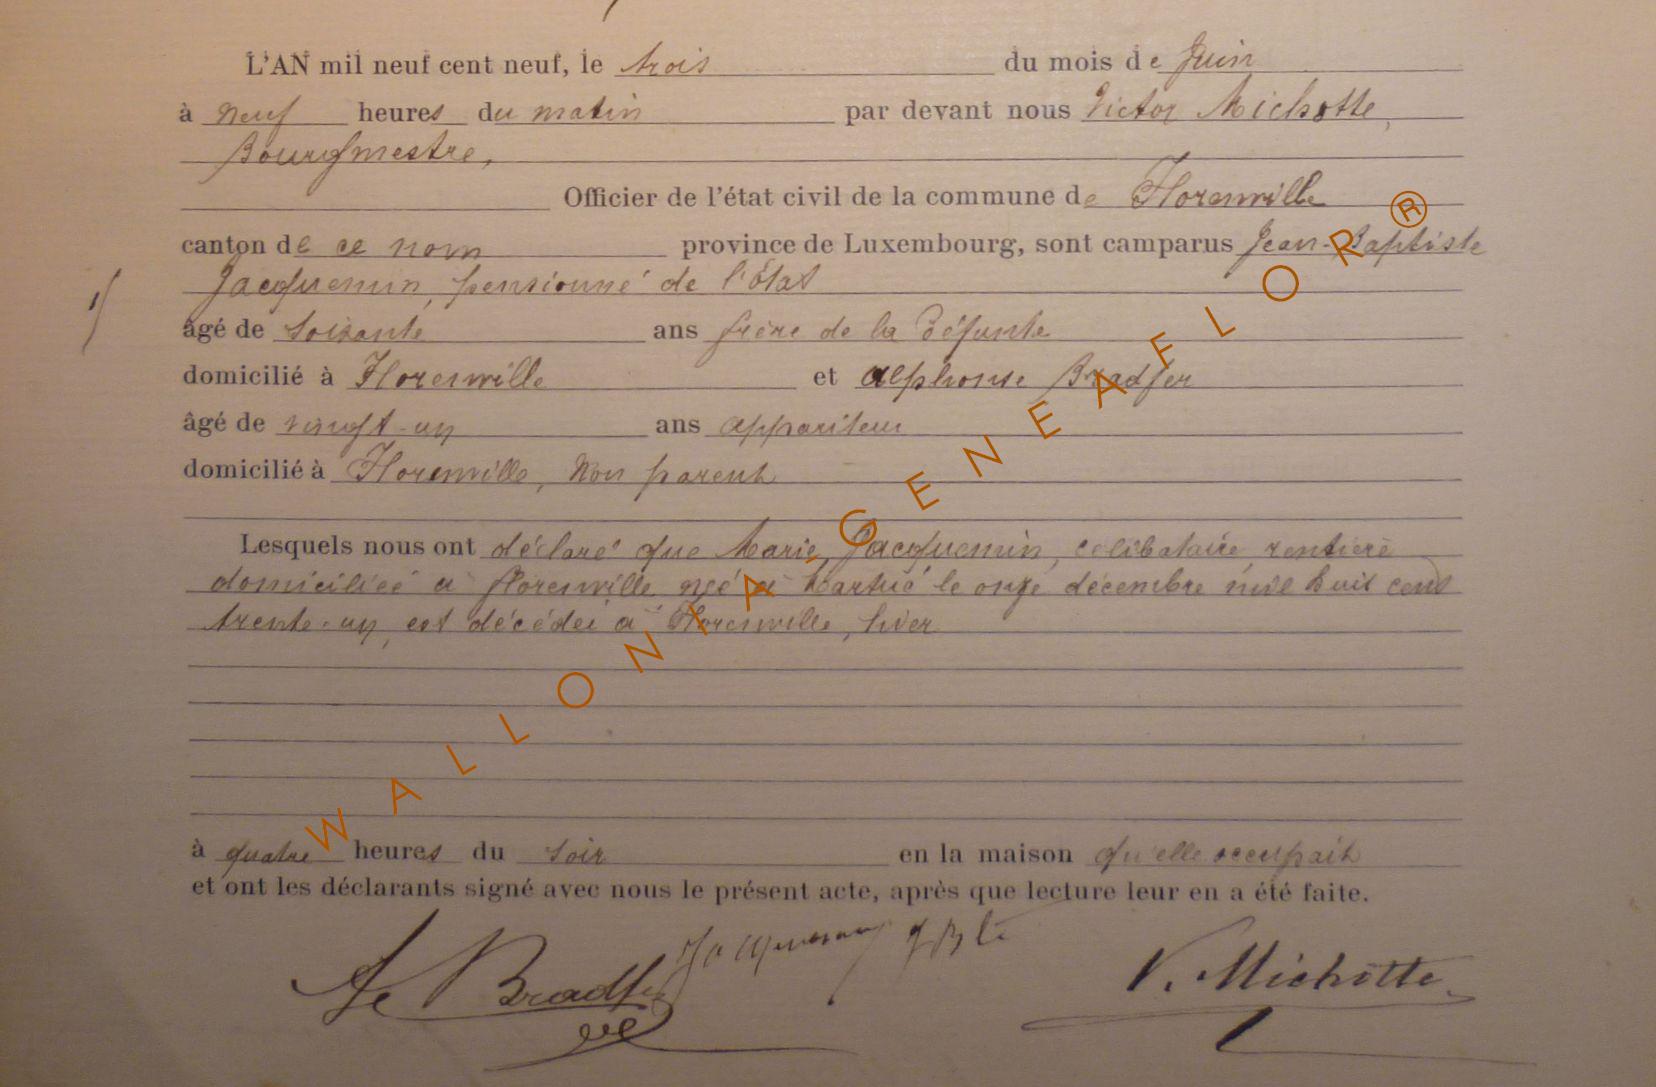 L'AN mil neuf cent neuf, le trois du mois de Juin
à neuf heures du matin par devant nous Victor Michotte,
Bourgmestre,
Officier de l'état civil de la commune de Florenville
canton de ce nom province de Luxembourg, sont camparus Jean-Baptiste
Jacquemin, pensionné de l'État
âgé de soixante ans frère de la défunte
domicilié à Florenville et alphonse Bradfer
âgé de vingt-un ans appariteur
domicilié à Florenville, non parent
Lesquels nous ont déclaré que Marie, Jacquemin, célibataire, rentière
domiciliée à florenville née à Martué le onze décembre mil huit cent
trente-un, est décédée à Florenville, hier
à quatre heures du soir en la maison qu'elle occupait
et ont les déclarants signé avec nous le présent acte, après que lecture leur en a été faite.
Bradfer Jacquemin JBte V. Michotte
WALLONIA-GENEAFLOR®